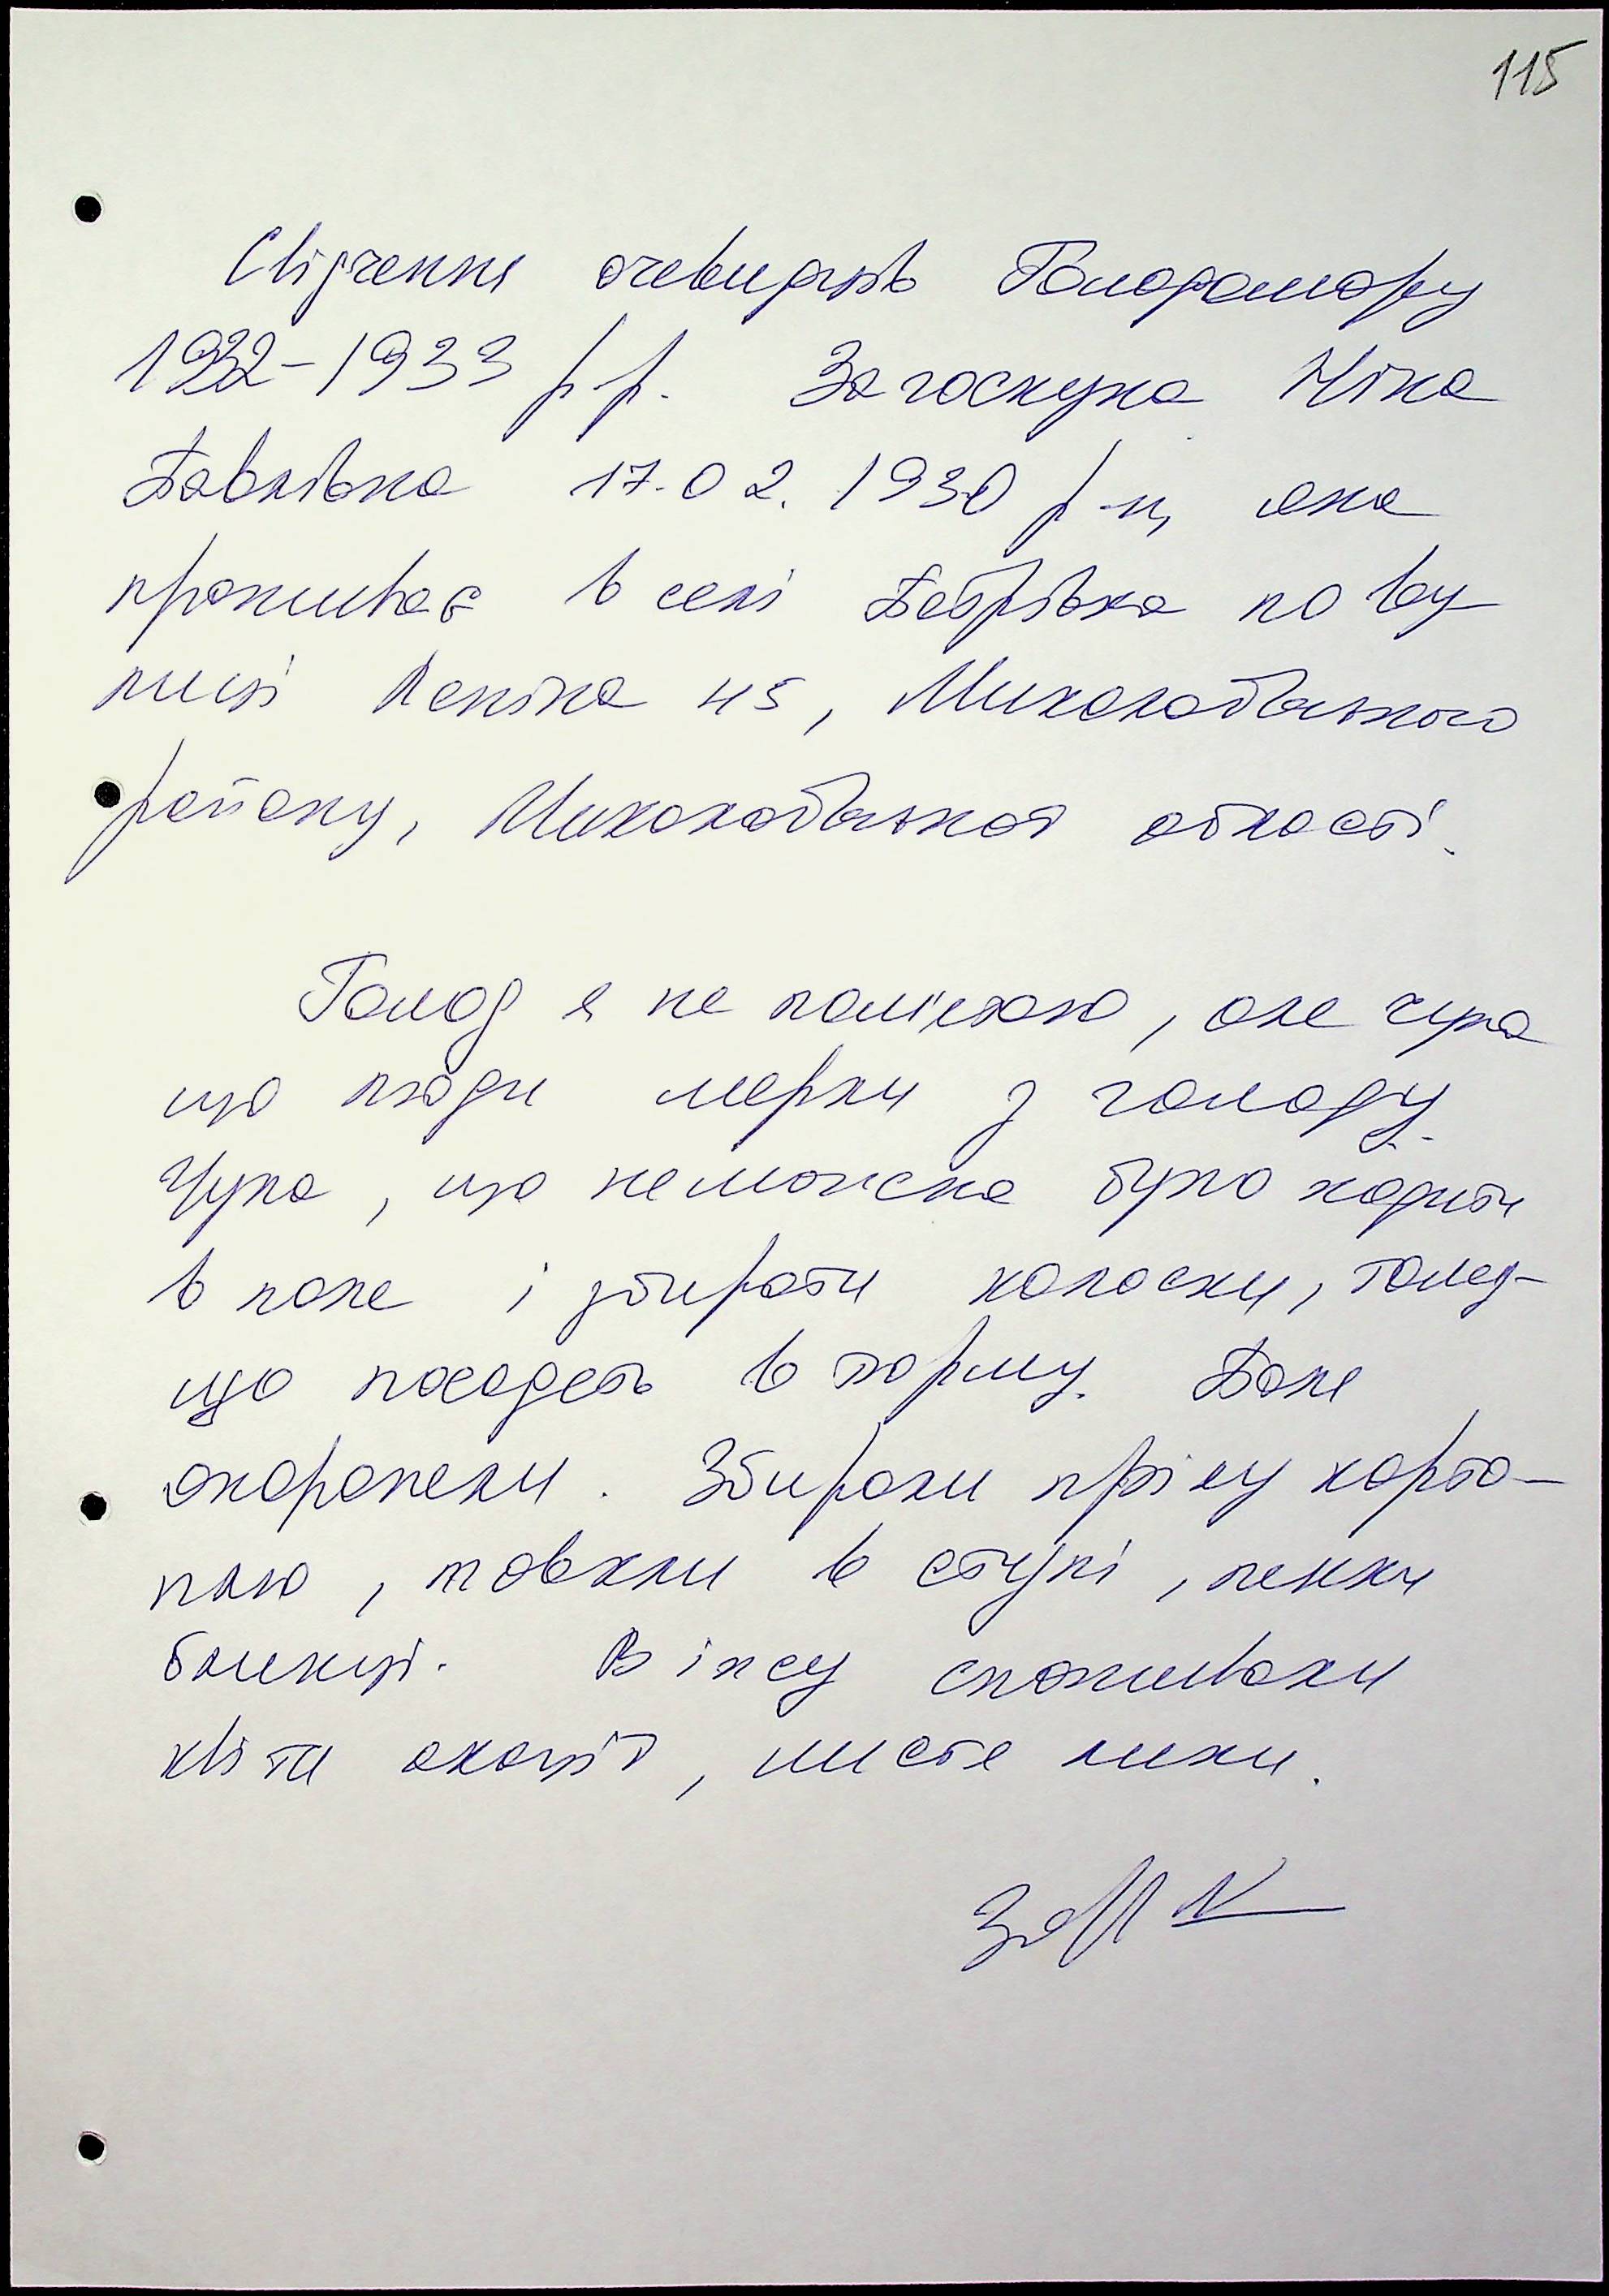 115
Свідчення очевидців Голодомору
1932-1933 р.р. Загоскуна Ніна
Павлівна 17.02.1930 р-н, яка
проживає в селі Петрівка по ву
лиці Леніна 45, Миколаївського
району, Миколаївської області.
Голод я не пам'ятаю, але чула
що люди мерли з голоду.
Чула, що неможна було ходити
в поле і збирати колоски, тому-
що посадять в тюрму. Поле
охороняли. Збирали прілу карто-
плю, товкли в ступі, пекли
блинці. В їжу споживали
квіти акації, листя липи.